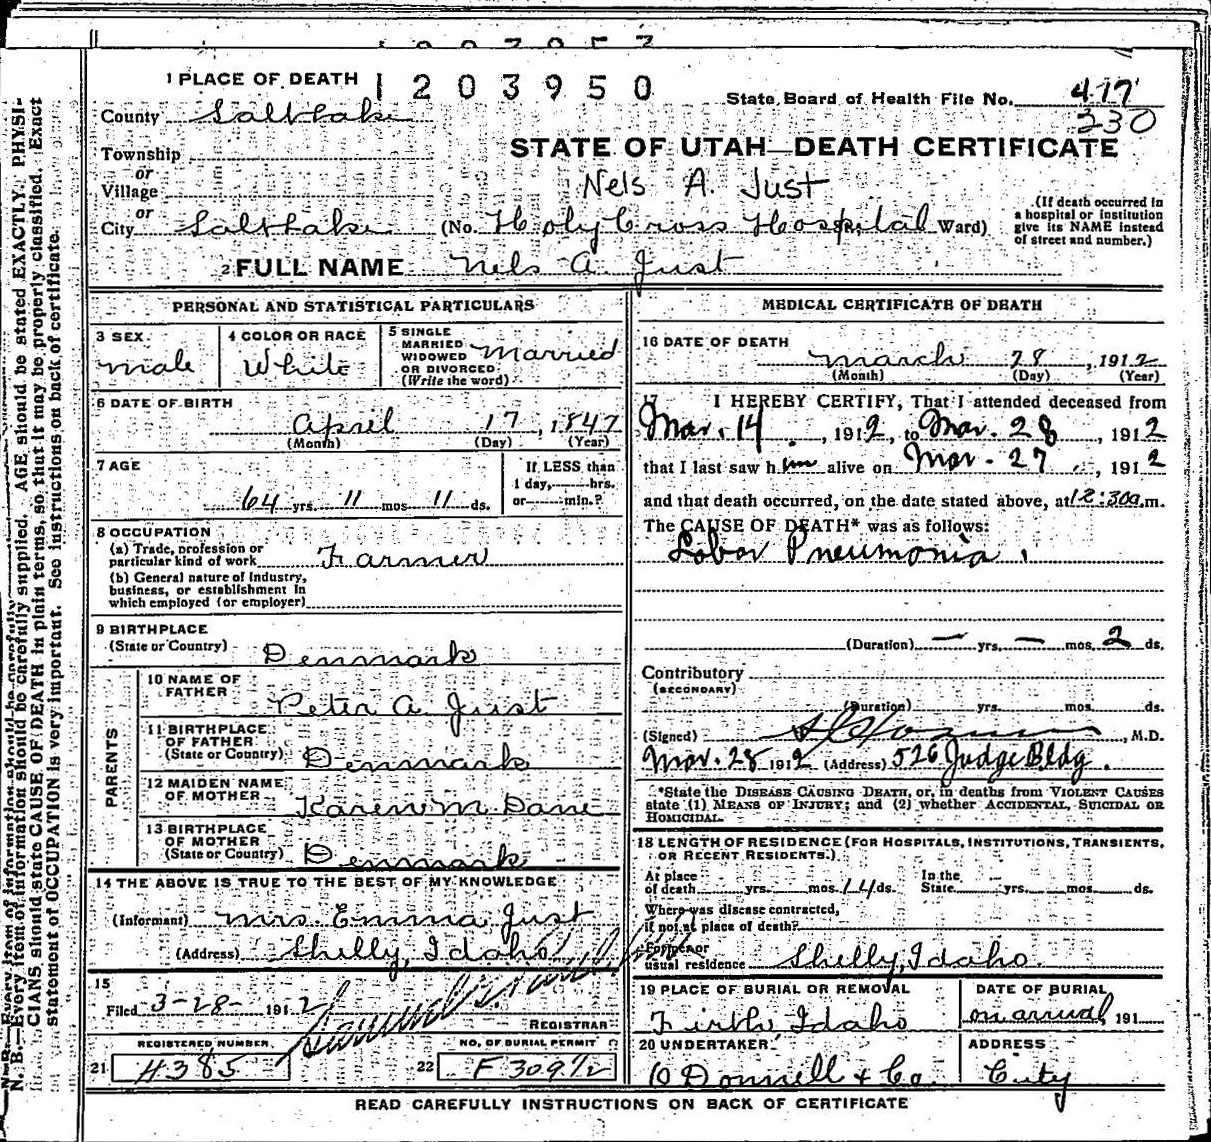 1 PLACE OF DEATH 1 203950
State Board of Health File No. 477
230
County Salt Lake
STATE OF UTAH—DEATH CERTIFICATE
Township
or
Village
Nels A. Just
or
City Salt Lake (No. Holy Cross Hospital Ward)
(If death occurred in a hospital or institution give its NAME instead of street and number.)
2 FULL NAME Nels A. Just
PERSONAL AND STATISTICAL PARTICULARS
3 SEX
male
4 COLOR OR RACE
White
5 SINGLE
MARRIED
WIDOWED
OR DIVORCED
(Write the word)
Married
6 DATE OF BIRTH
April 17, 1847
(Month) (Day) (Year)
7 AGE
64 yrs. 11 mos. 11 ds.
If LESS than
1 day, hrs.
or min.?
8 OCCUPATION
(a) Trade, profession or
particular kind of work Farmer
(b) General nature of industry,
business, or establishment in
which employed (or employer)
9 BIRTHPLACE
(State or Country)
Denmark
PARENTS
10 NAME OF
FATHER
Peter A. Just
11 BIRTHPLACE
OF FATHER
(State or Country)
Denmark
12 MAIDEN NAME
OF MOTHER
Karen M. Dane
13 BIRTHPLACE
OF MOTHER
(State or Country)
Denmark
14 THE ABOVE IS TRUE TO THE BEST OF MY KNOWLEDGE
(Informant) Mrs. Emma Just
(Address) Shelly, Idaho
15
Filed 3-28- 1912
REGISTRAR
REGISTERED NUMBER
21 H385
NO. OF BURIAL PERMIT
22 F309½
MEDICAL CERTIFICATE OF DEATH
16 DATE OF DEATH
March 28, 1912
(Month) (Day) (Year)
17 I HEREBY CERTIFY, That I attended deceased from
Mar. 14, 1912, to Mar. 28, 1912
that I last saw him alive on Mar. 27, 1912
and that death occurred, on the date stated above, at 12:30a.m.
The CAUSE OF DEATH* was as follows:
Lobar Pneumonia.
(Duration) — yrs. — mos. 2 ds.
Contributory
(SECONDARY)
(Duration) yrs. mos. ds.
(Signed) , M.D.
Mar. 28 1912 (Address) 526 Judge Bldg.
*State the DISEASE CAUSING DEATH, or, in deaths from VIOLENT CAUSES
state (1) MEANS OF INJURY; and (2) whether ACCIDENTAL, SUICIDAL OR
HOMICIDAL.
18 LENGTH OF RESIDENCE (FOR HOSPITALS, INSTITUTIONS, TRANSIENTS,
OR RECENT RESIDENTS.)
At place
of death yrs. mos. 14 ds.
In the
State yrs. mos. ds.
Where was disease contracted,
if not at place of death?
Former or
usual residence Shelly, Idaho.
19 PLACE OF BURIAL OR REMOVAL
Firth, Idaho
DATE OF BURIAL
on arrival, 191
20 UNDERTAKER
O Donnell & Co.
ADDRESS
City
READ CAREFULLY INSTRUCTIONS ON BACK OF CERTIFICATE
N. B.—Every item of information should be carefully supplied. AGE should be stated EXACTLY. PHYSI-
CIANS should state CAUSE OF DEATH in plain terms, so that it may be properly classified. Exact
statement of OCCUPATION is very important. See instructions on back of certificate.